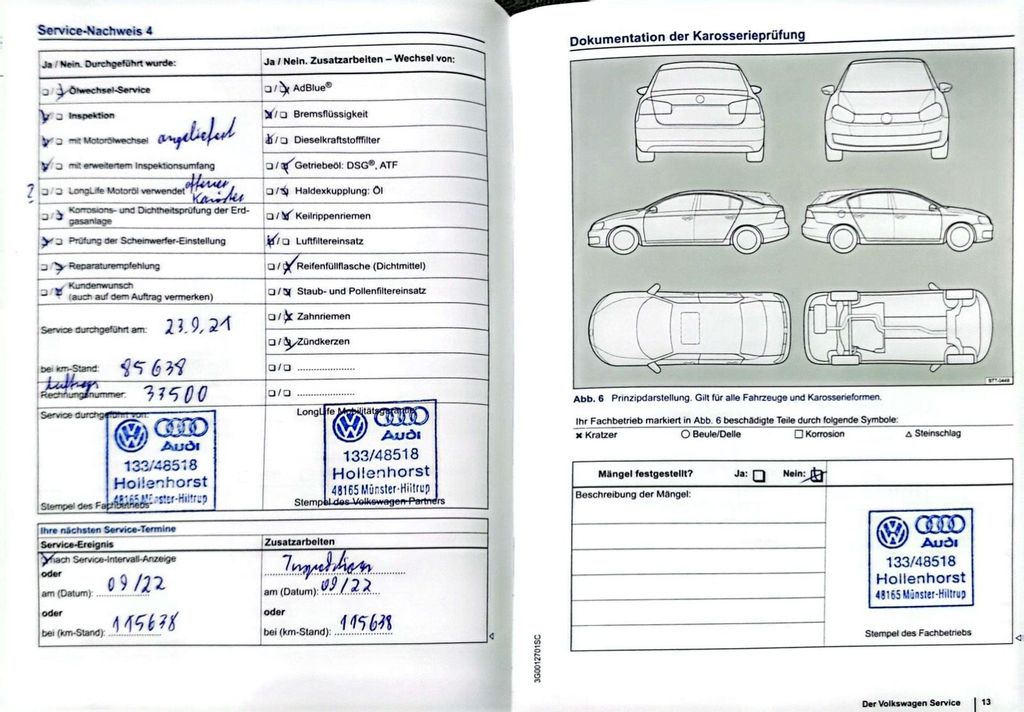 Service-Nachweis 4
Ja / Nein. Durchgeführt wurde:
Ölwechsel-Service
Inspektion
mit Motorölwechsel angeliefert
mit erweitertem Inspektionsumfang
? LongLife Motoröl verwendet offener Kanister
Korrosions- und Dichtheitsprüfung der Erd-
gasanlage
Prüfung der Scheinwerfer-Einstellung
Reparaturempfehlung
Kundenwunsch
(auch auf dem Auftrag vermerken)
Service durchgeführt am: 23.9.21
bei km-Stand: 85638
Auftrags
Rechnungsnummer: 33500
Service durchgeführt von:
Audi
133/48518
Hollenhorst
48165 Münster-Hiltrup
Stempel des Fachbetriebs
Ja / Nein. Zusatzarbeiten – Wechsel von:
AdBlue®
Bremsflüssigkeit
Dieselkraftstofffilter
Getriebeöl: DSG®, ATF
Haldexkupplung: Öl
Keilrippenriemen
Luftfiltereinsatz
Reifenfüllflasche (Dichtmittel)
Staub- und Pollenfiltereinsatz
Zahnriemen
Zündkerzen
LongLife Mobilitätsgarantie
Audi
133/48518
Hollenhorst
48165 Münster-Hiltrup
Stempel des Volkswagen Partners
Ihre nächsten Service-Termine
Service-Ereignis
nach Service-Intervall-Anzeige
oder
am (Datum): 09/22
oder
bei (km-Stand): 115638
Zusatzarbeiten
Inspektion
am (Datum): 09/22
oder
bei (km-Stand): 115638
Dokumentation der Karosserieprüfung
B7T-0448
Abb. 6 Prinzipdarstellung. Gilt für alle Fahrzeuge und Karosserieformen.
Ihr Fachbetrieb markiert in Abb. 6 beschädigte Teile durch folgende Symbole:
Kratzer Beule/Delle Korrosion Steinschlag
Mängel festgestellt? Ja: Nein:
Beschreibung der Mängel:
Audi
133/48518
Hollenhorst
48165 Münster-Hiltrup
Stempel des Fachbetriebs
3G0012701SC
Der Volkswagen Service 13